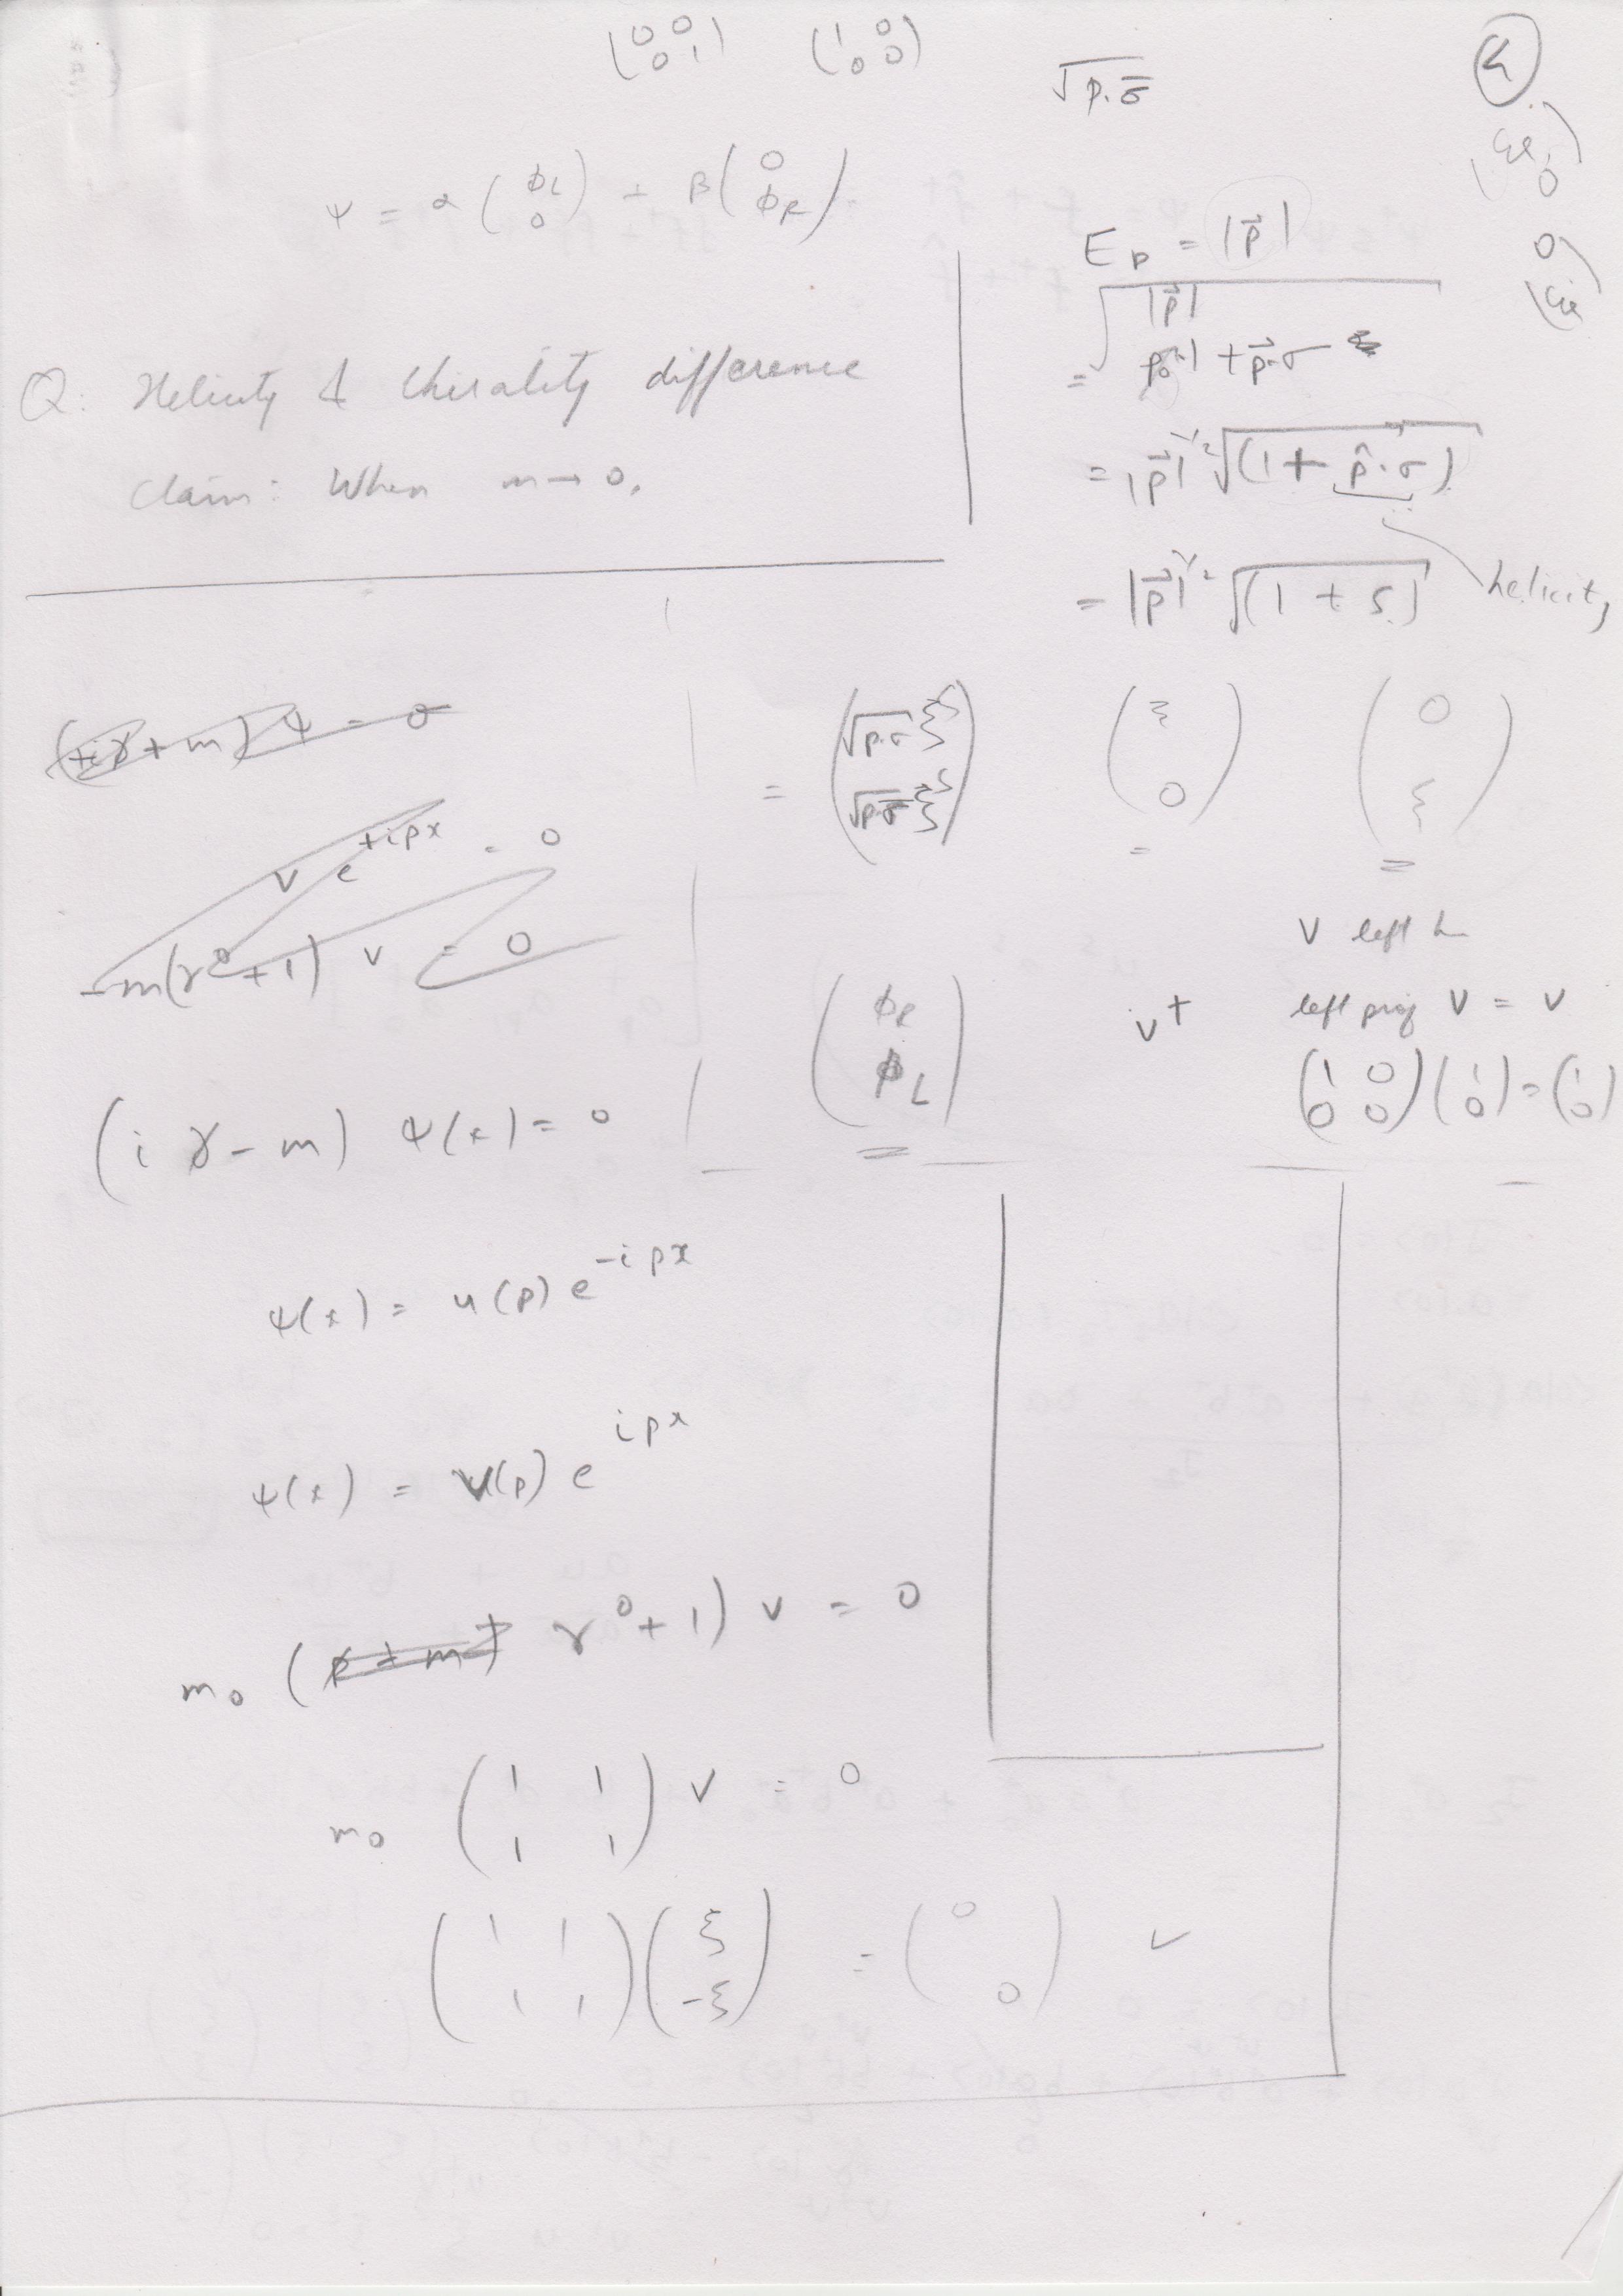 (0 0 / 0 1) (1 0 / 0 0)
√p·σ̄
4
(ξ / 0)
(0 / ξ)
ψ = α (φL / 0) + β (0 / φR)
Ep = |p⃗|
= √|p⃗| p0·1 + p⃗·σ
= |p⃗|^1/2 √(1 + p̂·σ)
helicity
= |p⃗|^1/2 √(1 + s)
Q: Helicity & chirality difference
Claim: When m → 0,
(+i∂̸ + m) ψ = 0
v e^+ipx = 0
-m(γ^0 + 1) v = 0
= (√p·σ ξ^s / √p·σ̄ ξ^s) (ξ / 0) = (0 / ξ) =
(φR / φL) =
v left h
v† left proj v = v
(1 0 / 0 0)(1 / 0) = (1 / 0)
(i ∂̸ - m) ψ(x) = 0
ψ(x) = u(p) e^-ipx
ψ(x) = v(p) e^ipx
m0 (p̸ + m) γ^0 + 1) v = 0
m0 (1 1 / 1 1) v = 0
(1 1 / 1 1)(ξ / -ξ) = (0 / 0) ✓